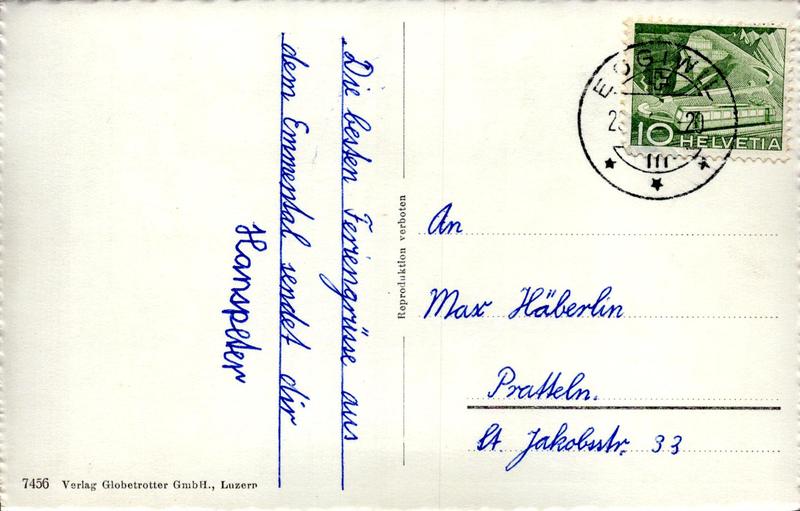 Die besten Feriengrüsse aus
dem Emmental sendet dir
Hanspeter
7456 Verlag Globetrotter GmbH., Luzern
Reproduktion verboten
EGGIWIL
10 HELVETIA
An
Max Häberlin
Pratteln.
St. Jakobsstr. 33